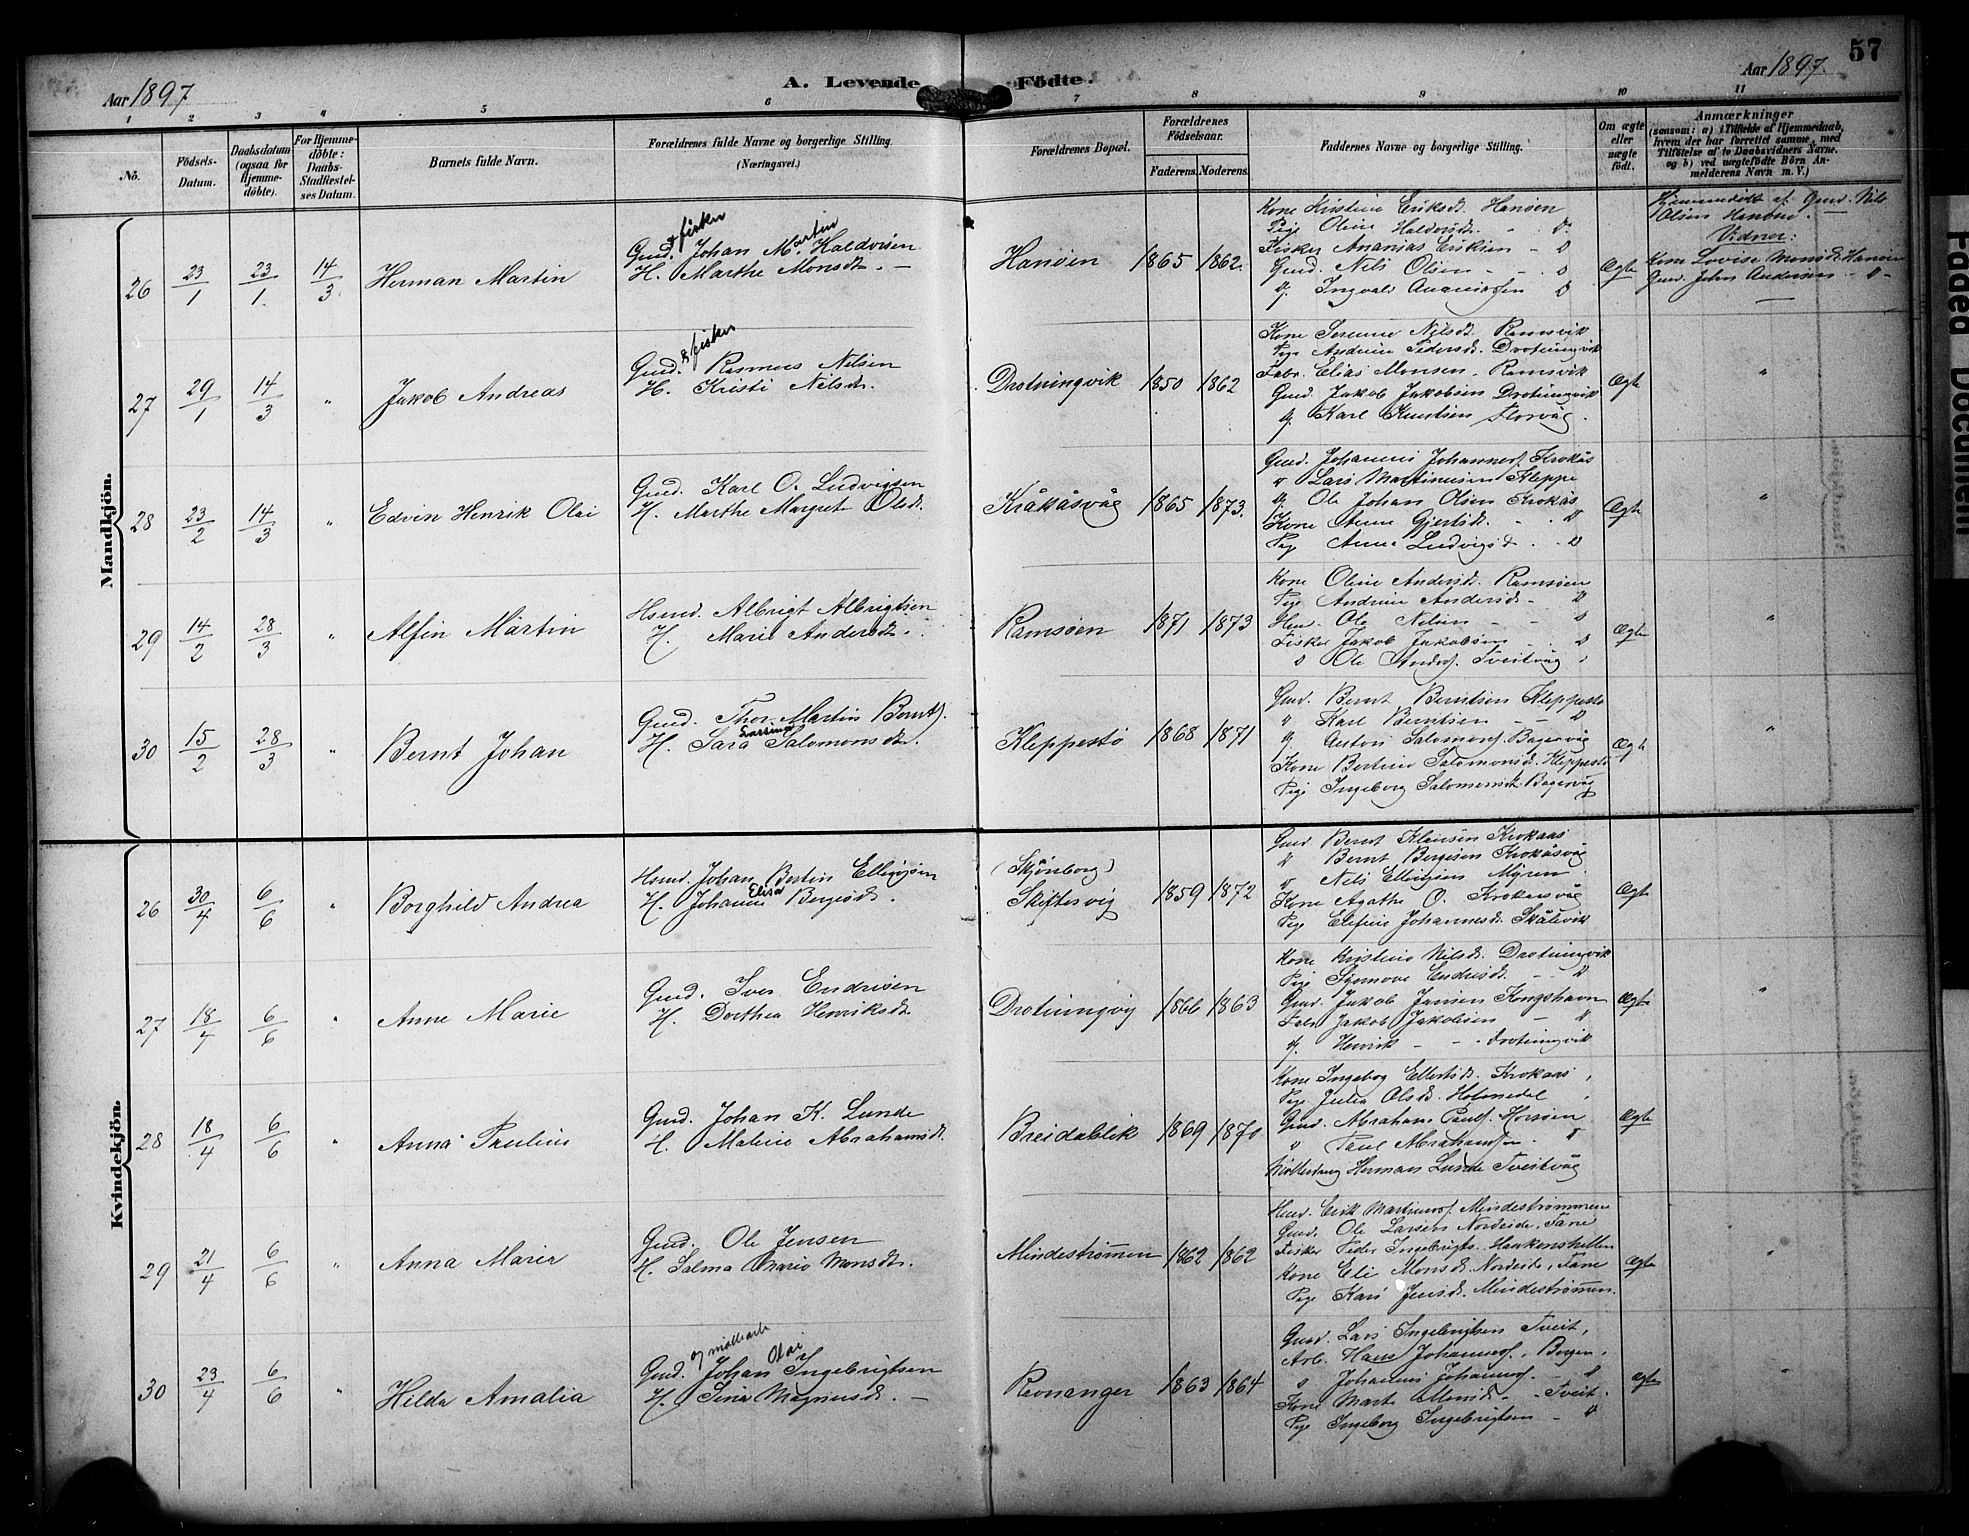 57
Aar 1897
A. Levende Födte.
Aar 1897.
1 2 3 4 5 6 7 8 9 10 11
No.
Födsels-Datum.
Daabsdatum (ogsaa for Hjemme-döbte).
For Hjemme-döbte: Daabs-Stadfæstel-ses Datum.
Barnets fulde Navn.
Forældrenes fulde Navne og borgerlige Stilling. (Næringsvei.)
Forældrenes Bopæl.
Forældrenes Födselsaar.
Faderens. Moderens.
Faddernes Navne og borgerlige Stilling.
Om ægte eller uægte født.
Anmærkninger
(saasom: a) i Tilfælde af Hjemmedaab, hvem der har forrettet samme, med Tilföielse af to Daabsvidners Navne. og b) ved uægtefödte Börn An-melderens Navn m. V.)
Mandkjön.
26 23/1 23/1. 14/3. Herman Martin
Gmd. & fisker Johan Martin Haldorsen
H. Marthe Monsdtr. —
Hanöen 1865 1862.
Kone Kristine Eriksdt. Hanöen
Pige Oline Haldorsdt. - D°
Fisker Ananias Eriksen - D
Gmd. Nils Olsen - - D
Ingvald Ananiassen D
Ægte
Hjemmedöbt af Gmd. Nils Olsen Hanöen. —
Vidner:
Kone Lovise Monsdt. Hanöen
Gmd. John Andersen - D -
27 29/1 14/3 " Jakob Andreas
Gmd. & fisker Rasmus Nilsen
H. Kristi Nilsdtr.
Drotningvik 1850 1862
Kone Serine Nilsdt. Ramsvik
Pige Andrine Pedersdt. Drotningvik
Fabr. Elias Monsen. Ramsvik
Gmd. Jakob Jakobsen Drotningvik
Karl Knutsen Florvåg.
Ægte "
28 23/2 14/3 " Edvin Henrik Olai
Gmd. Karl O. Ludvigsen
H. Marthe Margret Olsdt.
Kråkåsvåg 1865 1873.
Gmd. Johannes Johannes. Krokås
" Lars Martinusen Kleppe
Ole Johan Olsen Krokås
Kone Anne Gjertsdt. - - D
Pige Anna Ludvigsdt. - D
Ægte "
29 14/2 28/3 " Alfin Martin
Hsmd. Albrigt Albrigtsen
H. Marie Andersdtr.
Ramsöen 1871 1873
Kone Oline Andersdt. Ramsöen
Pige Andrine Andersdt. - D
Ole Nilsen - - D
Fisker Jakob Jakobsen - D
D Ole Anders. Tveitvåg
Ægte "
30 15/2 28/3 " Bernt Johan
Gmd. Thor Martin Bernts.
H. Sara Larsine Salomonsdtr.
Kleppestö 1868 1871
Gmd. Bernt Berntsen Kleppestö
" Karl Berntsen - - D
Anton Salomons.
Kone Bertine Salomonsdt. Kleppestö
Pige Ingeborg Salomonsdt.
Ægte "
Kvindekjön.
26 30/4 6/6 " Borghild Andrea
Hsmd. Johan Bertin Ellingsen
H. Johanne Elisa Bergesdt.
(Skjönborg)
Skiftesvig 1859 1872
Gmd Bernt Klausen Krokaas
D Bernt Bergesen Krokåsvåg
D Nils Ellingsen Myren
Kone Agathe O. Krokaasvåg
Pige Elefine Johannesdt. Skålevik
Ægte
27 18/4 6/6 " Anne Marie
Gmd. Iver Endresen
H. Dorthea Henriksdt.
Drotningvig 1866 1863
Kone Kristine Nilsdt. Drotningvik
Pige Synnove Endresdt. - D
Gmd. Jakob Jansen Kongshavn
Fabr Jakob Jakobsen - D
Henrik - - Drotningvik
Ægte "
28 18/4 6/6 " Anna Pauline
Gmd. Johan K. Lunde
H. Maline Abrahamsdt.
Breidablik 1869 1870
Kone Ingeborg Ellertsdt. Krokaas
Pige Julia Olsdt. Holmedal
Gmd. Abraham Pauls. Horsöen
" Paul Abrahams - D
Herman Lunde Tveitvåg
Ægte
29 21/4 6/6 " Anna Maria
Gmd. Ole Jensen
H. Salma Marie Monsdtr.
Mindeströmmen 1862 1862
Erik Martinus. Mindeströmmen
Gmd. Ole Larsen Nordeide, Fane
Fisker Peder Ingebrigts. Haakenshellen
Kone Eli Monsdt. Nordeide, Fane
Pige Kari Jensdt. Mindeströmmen.
Ægte "
30 23/4 6/6 " Hilda Amalia
Gmd. Johan Olai Ingebrigtsen
H. Sina Magnusdt. —
Revnanger 1863 1864
Gmd. Lars Ingebrigtsen Tveit,
Arb. Hans Johannes., Bergen,
" Johannes Johannes. - D
Kone Marte Monsdt. - Tveit.
Pige Ingeborg Ingebrigtsen - D
ægte "
Faded Document